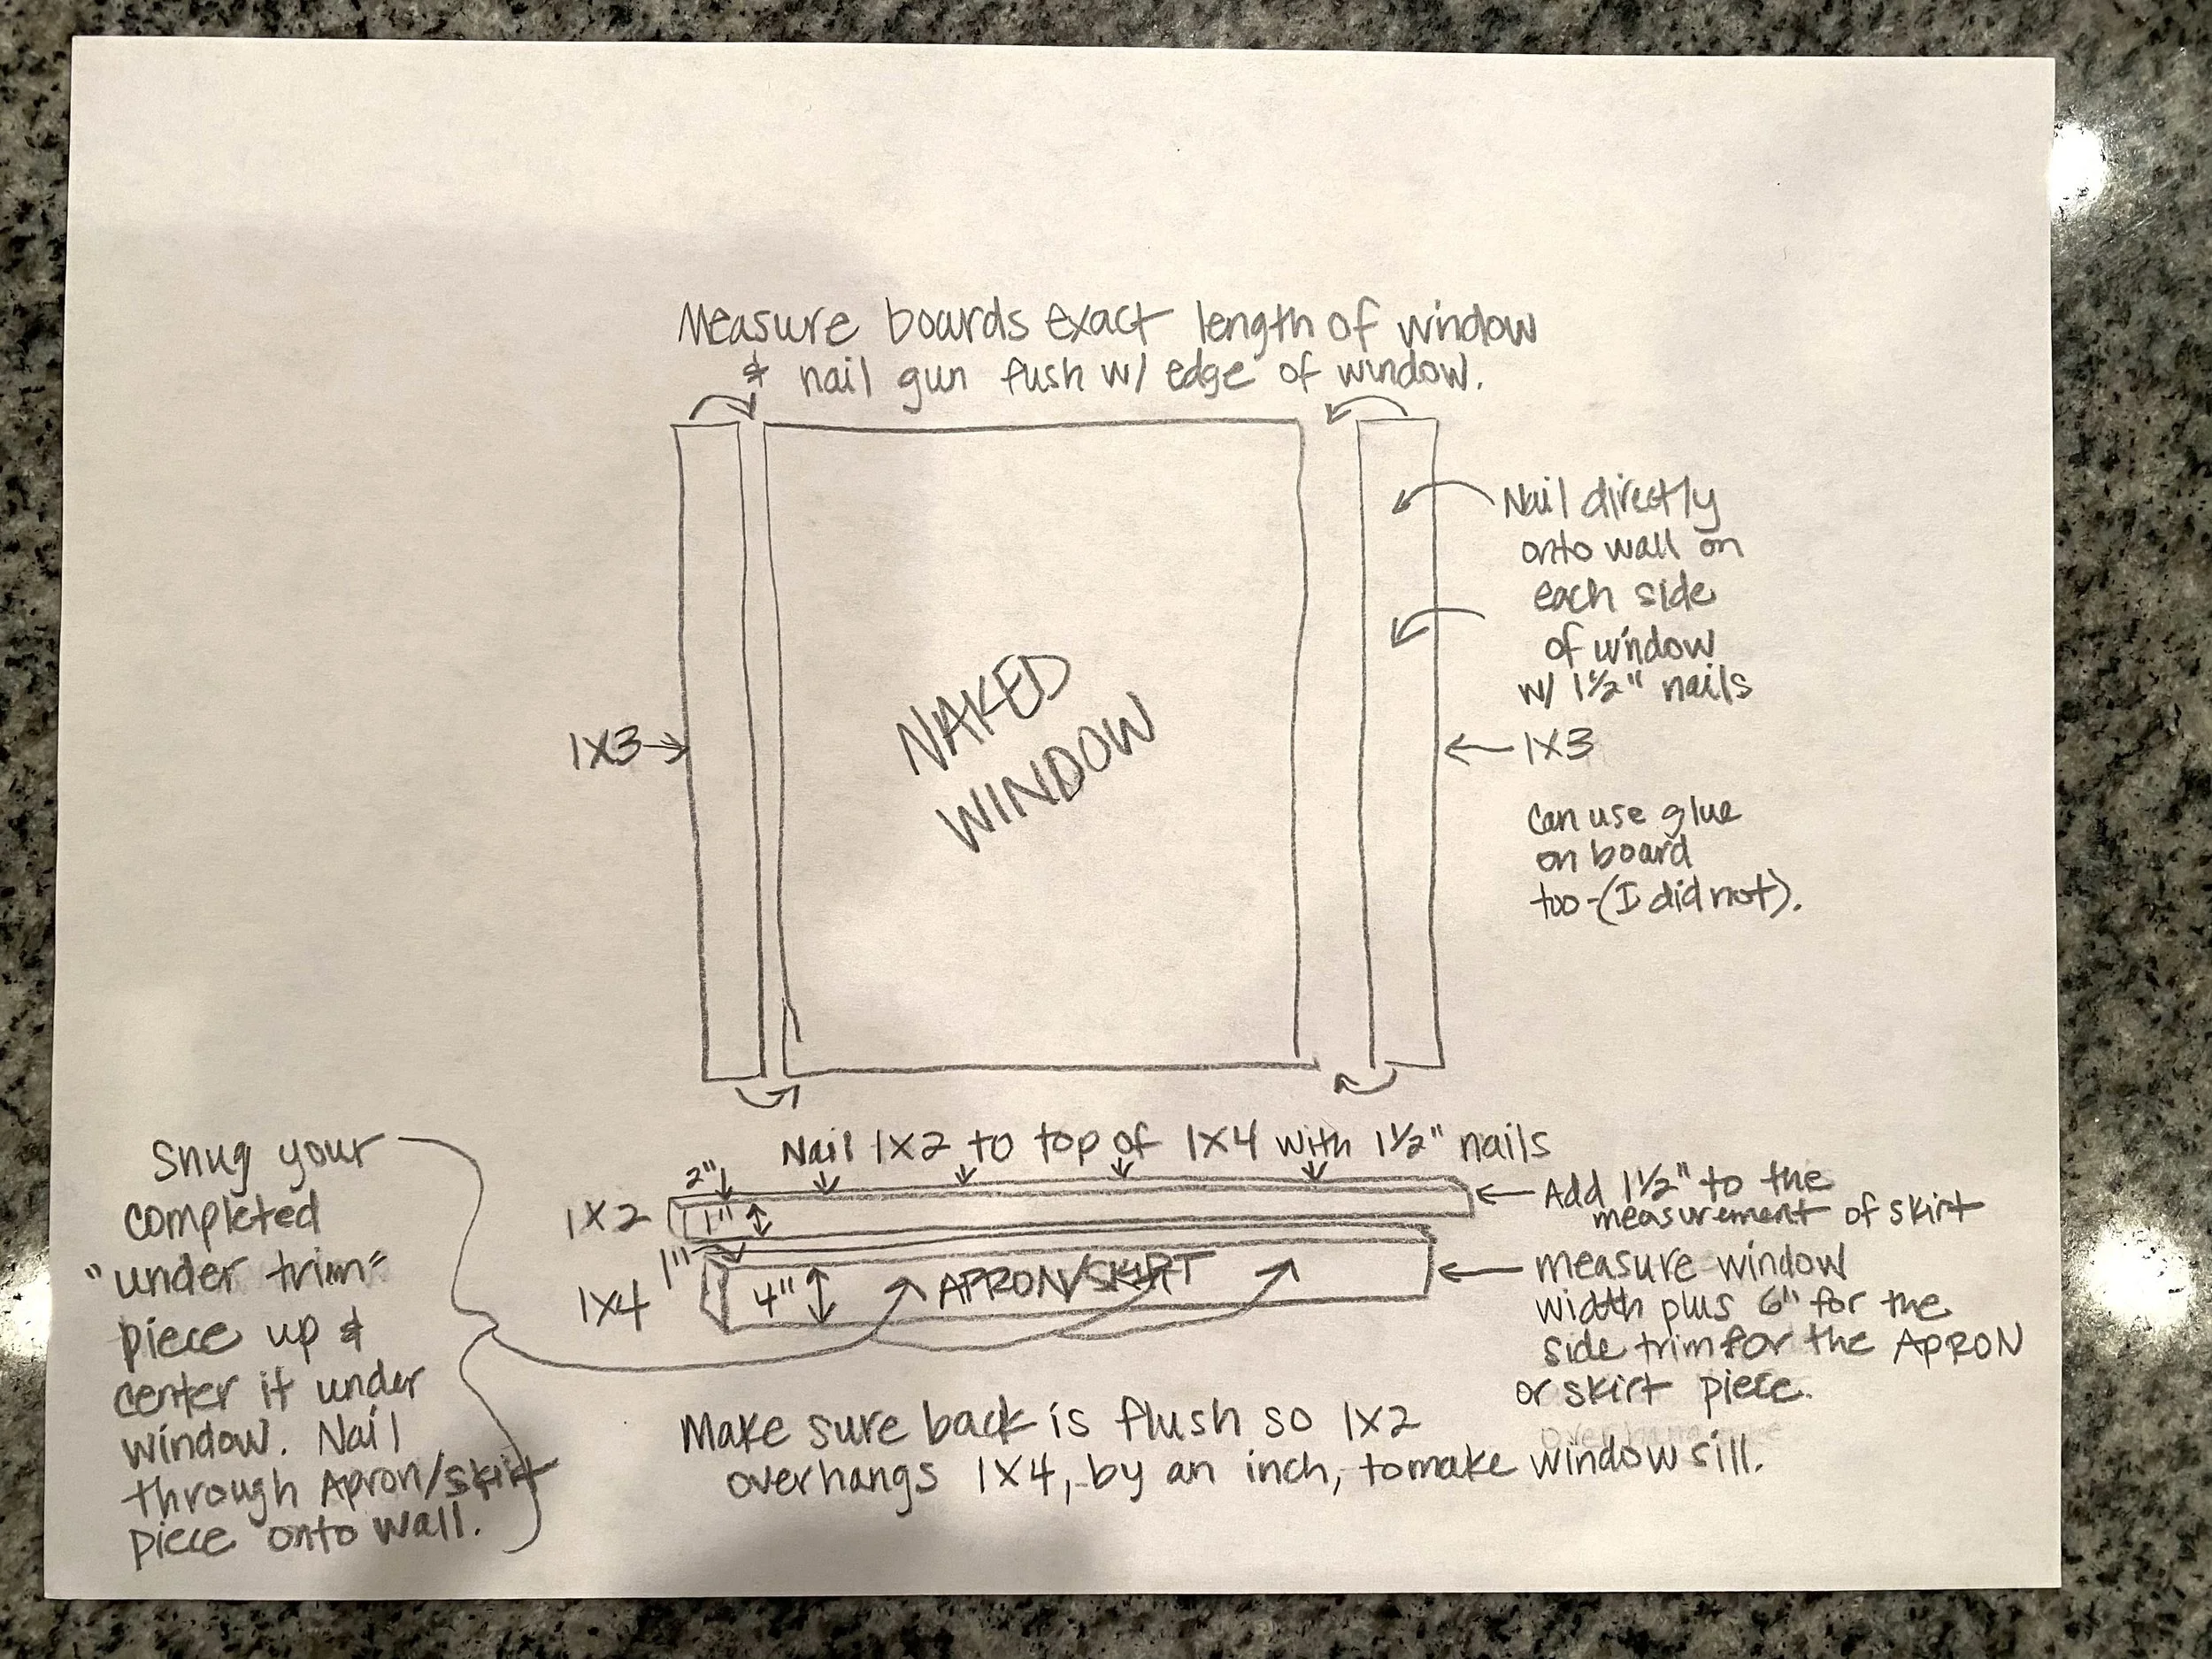 Measure boards exact length of window
& nail gun fush w/ edge of window.
Nail directly
onto wall on
each side
of window
w/ 1½" nails
1X3
1X3
NAKED
WINDOW
can use glue
on board
too-(I did not).
Nail 1X2 to top of 1X4 with 1½" nails
Snug your
completed
"under trim"
piece up &
center it under
window. Nail
through Apron/skirt
piece onto wall.
2"
1X2
1"
Add 1½" to the
measurement of skirt
1"
1X4
4"
APRON/SKIRT
measure window
width plus 6" for the
side trim for the APRON
or skirt piece.
Make sure back is flush so 1X2
overhangs 1X4, by an inch, to make window sill.